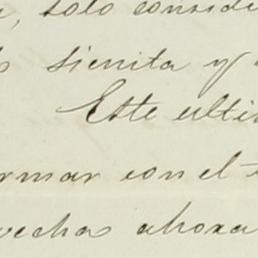 solo conside
sienita y
Este ulti
rmar con el
vecha ahora